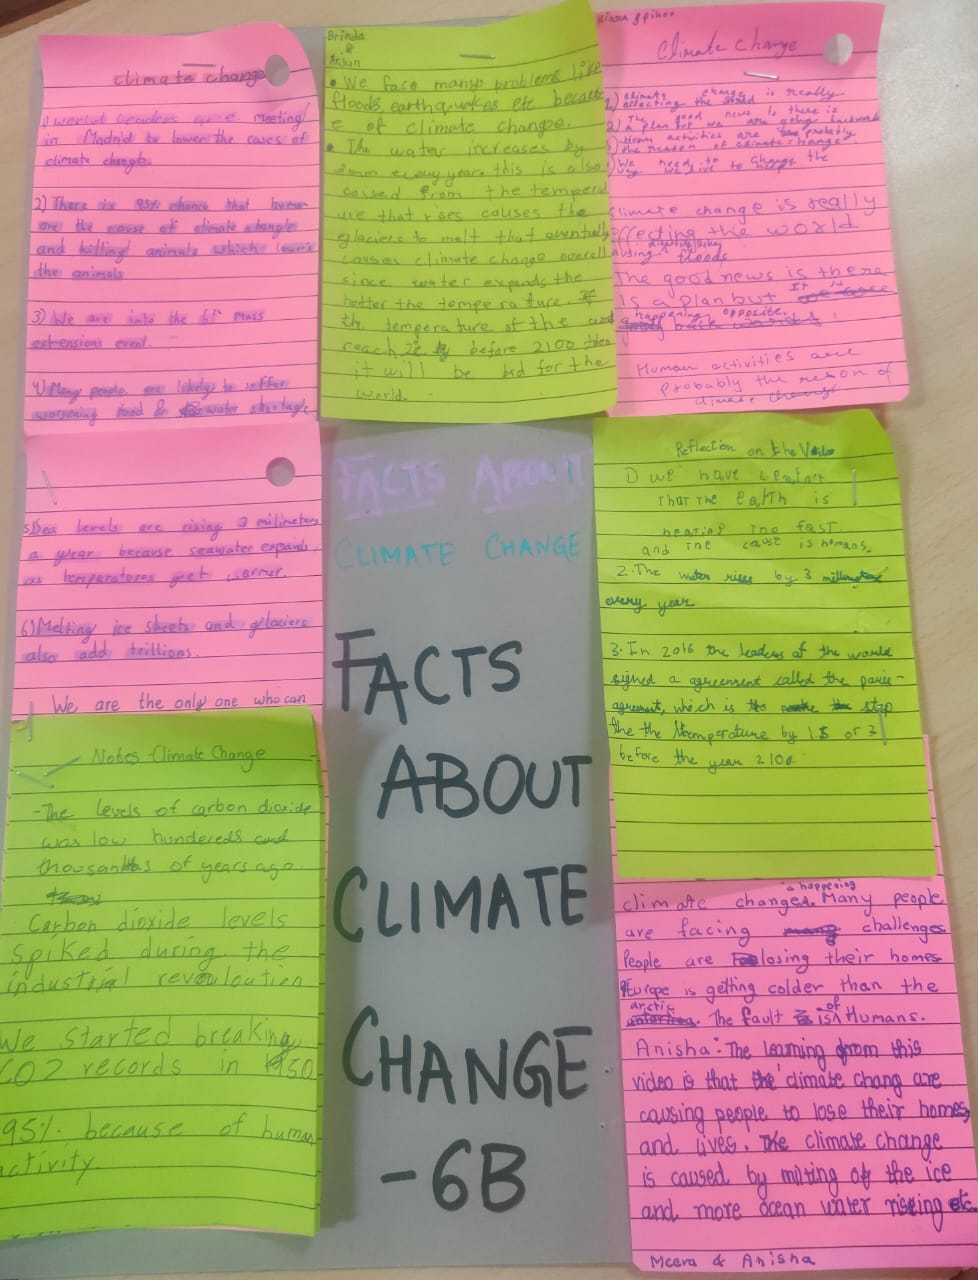 climate change
1) worlds leaders are meeting
in Madrid to lower the cases of
climate change.
2) There is 95% chance that human
are the cause of climate change
and killing animals which lowers
the animals
3) We are into the 6th mass
extensions event.
4) Many people are likely to suffer
worsening food & water shortage
5) Sea levels are rising 3 milimeters
a year because seawater expands
as temperatures get warmer.
6) Melting ice sheets and glaciers
also add trillions.
We are the only one who can
Notes - Climate Change
- The levels of carbon dioxide
was low hundereds and
thousands of years ago.
Carbon dioxide levels
spiked during the
industrial revouloution
We started breaking
CO2 records in 1950
95% because of human
activity.
Brinda
&
Arjun
• We face many problems like
floods, earthquakes etc becaus
e of climate change.
• The water increases by
3mm every years this is also
caused from the temperat
ure that rises causes the
glaciers to melt that eventually
causes climate change overall
since water expands the
hotter the tempe ra ture.
th temperature of the
reach 2c by before 2100 then
it will be bad for the
world.
FACTS ABOUT
CLIMATE CHANGE
FACTS
ABOUT
CLIMATE
CHANGE
-6B
Climate change
1) climate change is really
affecting the world
2) The good news is there is
a plan but we are going backwards
3) Human activities are probably
the reason of climate change
4) We need to change the
way we live to help
Climate change is really
effecting the world
causing floods
The good news is there
is a plan but It is
happening opposite
Human activities are
probably the reson of
climate change
Reflection on the Video
1) we have learnt
THAT THE EARTH IS
heating too fast.
and the cause is humans.
2. The water rises by 3 millimeter
every year
3. In 2016 the leaders of the world
signed a agreement called the paris-
agreement, which is to stop
the the temperature by 1.5 or 3
before the year 2100.
climate change is happening. Many people
are facing challenges
People are losing their homes
Europe is getting colder than the
arctic. The fault is of Humans.
Anisha: The learning from this
video is that the climate chang are
causing people to lose their homes,
and lives. The climate change
is caused by milting of the ice
and more ocean water rising etc.
Meera & Anisha